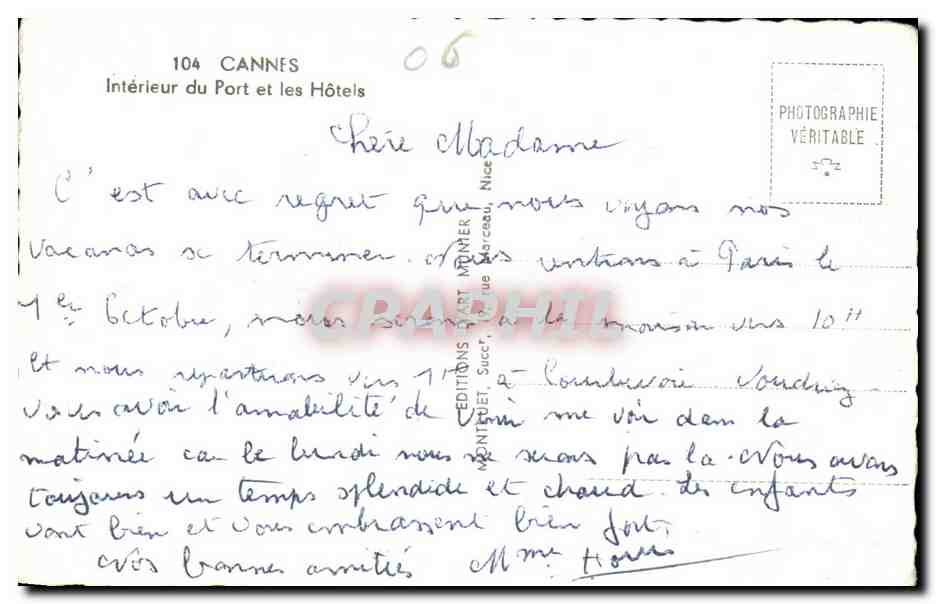 104 CANNES
Intérieur du Port et les Hôtels
06
PHOTOGRAPHIE
VÉRITABLE
Chère Madame
C'est avec regret que nous voyons nos
vacances se terminer. Nous rentrons à Paris le
1er Octobre, nous serons à la maison vers 10H
et nous repartirons vers 1H à Courbevoie Voudriez
vous avoir l'amabilité de venir me voir dans la
matinée car le lundi nous ne serons pas la. Nous avons
toujours un temps splendide et chaud. Les enfants
vont bien et vous embrassent bien fort,
Nos bonnes amitiés Mme
EDITIONS D'ART MUNIER
MONTLUET, Succr, rue Marceau, Nice
CRAPHIL